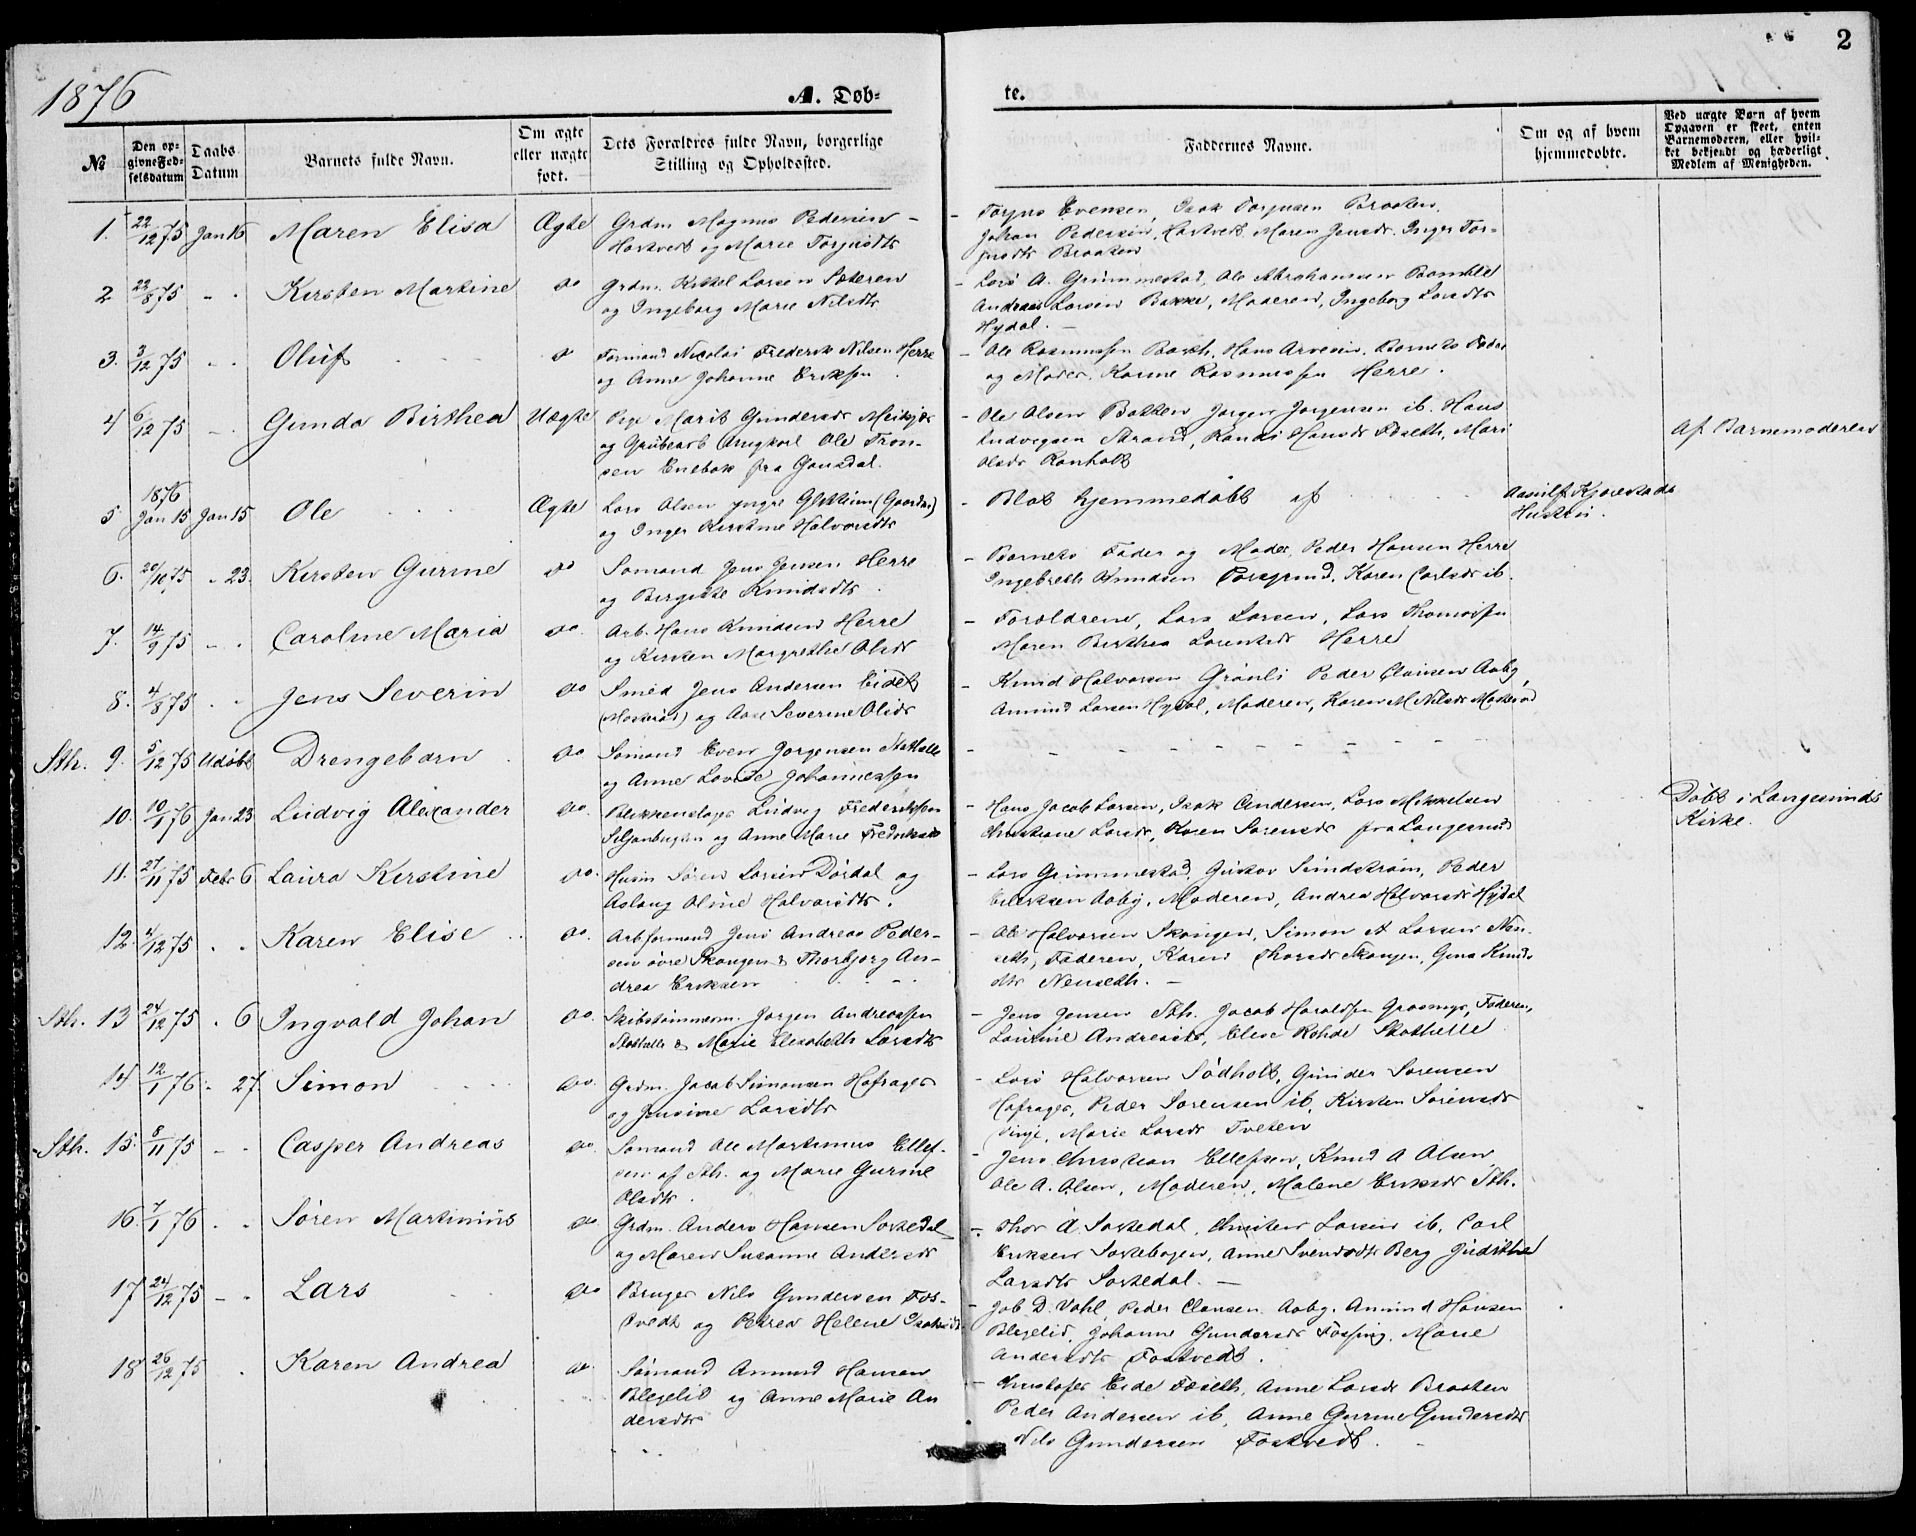 1876
A. Døb-
te.
2
№
Den op-
givne Fød-
selsdatum
Daabs
Datum
Barnets fulde Navn.
Om ægte
eller uægte
født.
Dets Forældres fulde Navn, borgerlige
Stilling og Opholdssted.
Faddernes Navne.
Om og af hvem
hjemmedøbte.
Ved uægte Børn af hvem
Opgaven er skeet, enten
Barnemoderen, eller hvil-
ket bekjendt og hæderligt
Medlem af Menigheden.
1. 22/12 75 Jan 16 Maren Elisa Ægte
Grdm. Magnus Pedersen
Hastvedt og Marie Torjusdtr
Torjus Evensen, Isak Torjusen Braaten,
Johan Pedersen, Hastvedt. Maren Jensdr. Inger Tor-
jusdtr Braaten
2 22/8 75 - - Kirsten Martine do
Grdm. Kittel Larsen Sæteren
og Ingeborg Marie Nilsdtr
Lars A. Grummestad, Ole Abrahamsen Bamble
Andreas Larsen Bakke, Moderen, Ingeborg Larsdtr
Hydal.
3. 3/12 75 - - Oluf do
Formand Nicolai Frederik Nilsen Herre
og Anne Johanne Eriksen
Ole Rasmussen Barth, Hans Arvesen, Barnets Fader
og Moder. Karine Rasmussen Herre.
4 6/12 75 - Gunda Birthea Uægte
Pige Marit Gundersdr
og Grubearb. Ungkarl Ole Tron-
sen Enebak fra Gausdal.
Ole Olsen Bakken Jørgen Jørgensen ib. Hans
Ludvigsen Strand, Randi Hansdr Føseth, Mari
Olsdr Ronholt
Af Barnemoderen
5 1876 Jan 15 Jan 15 Ole Ægte
Lars Olsen yngre
og Inger Kirstine Halvorsdtr
Blot hjemmedøbt af
Hustru.
6. 20/10 75 - 23. Kirsten Gurine do
Sømand Jens Jensen Herre
og Birgitte Knudsdtr
Barnets Fader og Moder, Peder Hansen Herre
Ingebreth Knudsen Porsgrund, Karen Carlsdr ib.
7. 14/9 75 - - Caroline Maria do.
Arb. Hans Knudsen Herre
og Kirsten Margrethe Olsdr
Forældrene, Lars Larsen, Lars Thomassen
Maren Birthea Lorentsdr Herre
8. 4/8 75 - - Jens Severin do
Smed Jens Andersen Eidet
og Aase Severine Olsdr
Knud Halvorsen Grønli Peder Clausen Aaby,
Amund Larsen Hydal, Moderen, Karen M Nilsdr
Sth. 9. 5/12 75 Udøbt Drengebarn do
Sømand Even Jørgensen Stathelle
og Anne Lovise Johannessen
10. 10/1 76 Jan 23 Ludvig Alexander do.
Blikkenslager Ludvig Frederiksen
og Anne Marie Fredriksdr
Hans Jacob Larsen, Isak Andersen, Lars Mikkelsen
Christiane Larsdr, Karen Sørensdr fra Langesund
Døbt i Langesunds
Kirke.
11. 27/11 75 Febr 6 Laura Kirstine do.
Husm Søren Larsen Dørdal og
Aslaug Oline Halvorsdtr.
Lars Grimmestad, Gustav Sundstrøm, Peder
Eilertsen Aaby, Moderen, Andrea Halvorsdr Hydal
12. 4/12 75 - - Karen Elise do.
Arbformand Jens Andreas Peder-
sen øvre Skougen & Thorbjørg An-
drea Eriksen
Ole Halvorsen Skougen, Simon A Larsen Nen-
seth, Faderen, Karen Thorsdr Skougen, Gina Knuds
dtr Nenseth.
Sth. 13 24/12 75 - 6 Ingvald Johan do.
Skibstømmerm. Jørgen Andreassen
Stathelle & Marie Elisabeth Larsdtr
Jens Jensen Sth. Jacob Haraldsen Grasmyr, Faderen,
Laurine Andreasdr, Elise Rohde Stathelle
14 12/1 76 - 27. Simon do.
Grdm. Jacob Simonsen Hafrager
og Gusine Larsdtr
Lars Halvorsen Rødholt, Gunder Sørensen
Hafrager, Peder Sørensen ib, Kirsten Sørensdr
Vinje, Marie Larsdr Tveten
Sth. 15. 8/11 75 - - Casper Andreas do.
Sømand Ole Martinus Ellef-
sen af Sth. og Marie Gurine
Olsdtr.
Jens Christian Ellefsen, Knud A Olsen
Ole A. Olsen, Moderen, Malene Eriksdr Sth.
16. 7/1 76 - - Søren Martinius do.
Grdm. Anders Hansen Sortedal
og Maren Susanne Andersdr
Thor A Sortedal, Christen Larsen ib, Carl
Eriksen Sortebogen, Anne Svendsdtr Berg Judithe
Larsdtr Sortedal.
17 24/12 75 - - Lars do
Bruger Nils Gundersen Fos-
tvedt og Petrea Helene Isaksdr
Job D. Vahl, Peder Clausen Aaby, Amund Hansen
Blegelid, Johanne Gundersdr Fossing, Marie
Andersdtr Fostvedt.
18 26/12 75 - Karen Andrea do.
Sømand Amund Hansen
Blegelid og Anne Marie An
dersdtr
Christofer Eide Føseth, Anne Larsdr Braaten
Peder Andersen ib, Anne Gurine Gundersdtr
Nils Gundersen Fostvedt.